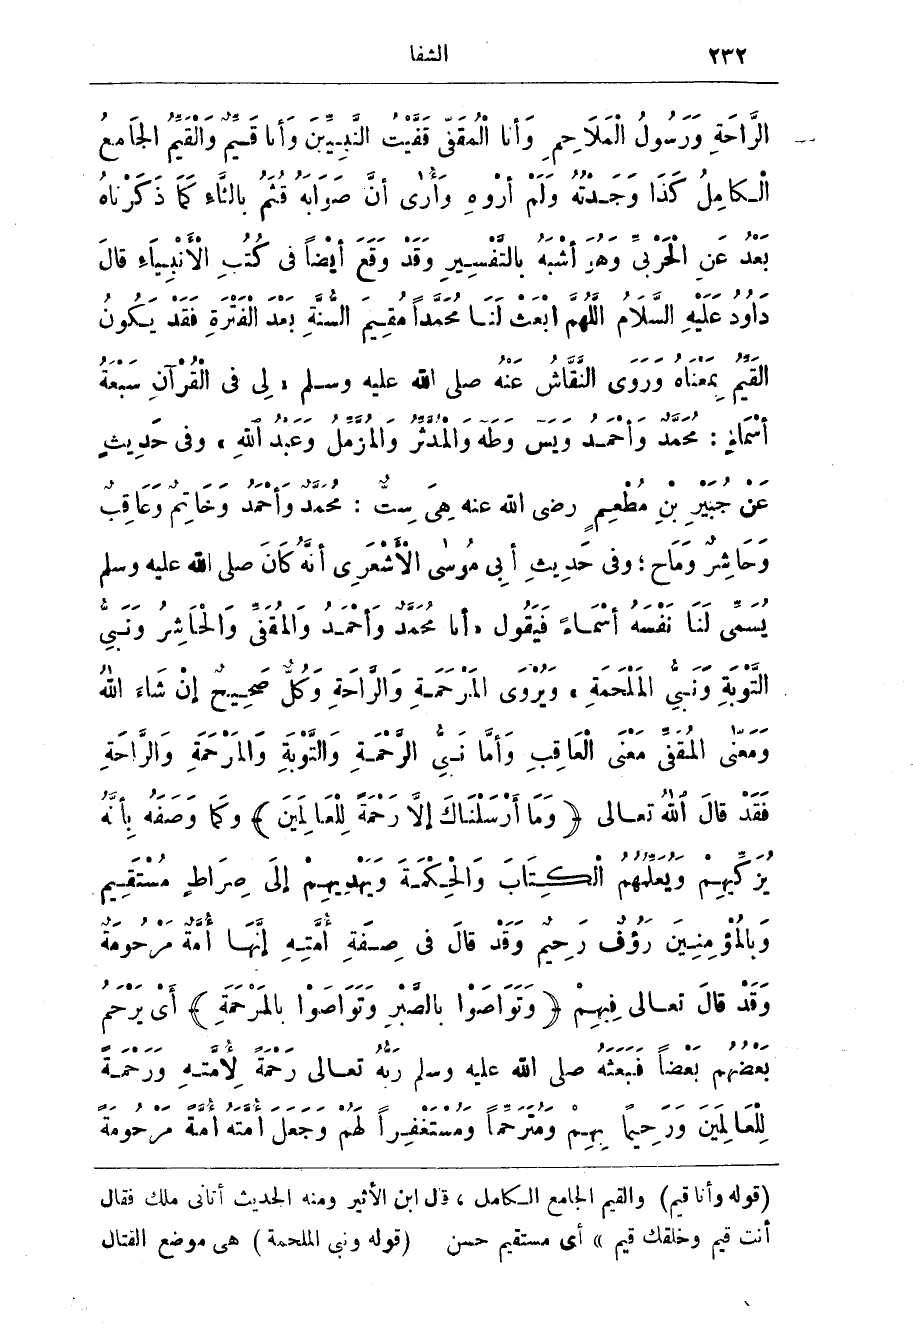 ٢٣٢ الشفا
الرَّاحَةِ وَرَسُولُ الْمَلَاحِمِ وَأَنَا الْمُقَفِّي قَفَّيْتُ النَّبِيِّينَ وَأَنَا قَيِّمٌ وَالْقَيِّمُ الْجَامِعُ
الْكَامِلُ كَذَا وَجَدْتُهُ وَلَمْ أَرْوِهِ وَأُرَى أَنَّ صَوَابَهُ قُثَمُ بِالثَّاءِ كَمَا ذَكَرْنَاهُ
بَعْدُ عَنِ الْحَرْبِيِّ وَهُوَ أَشْبَهُ بِالتَّفْسِيرِ وَقَدْ وَقَعَ أَيْضاً فِي كُتُبِ الْأَنْبِيَاءِ قَالَ
دَاوُدُ عَلَيْهِ السَّلَامُ اللَّهُمَّ ابْعَثْ لَنَا مُحَمَّداً مُقِيمَ السُّنَّةِ بَعْدَ الْفَتْرَةِ فَقَدْ يَكُونُ
الْقَيِّمُ بِمَعْنَاهُ وَرَوَى النَّقَّاشُ عَنْهُ صلى الله عليه وسلم «لِي فِي الْقُرْآنِ سَبْعَةُ
أَسْمَاءٍ : مُحَمَّدٌ وَأَحْمَدُ وَيٰس وَطٰه وَالْمُدَّثِّرُ وَالْمُزَّمِّلُ وَعَبْدُ اللهِ» وَفِي حَدِيثٍ
عَنْ جُبَيْرِ بْنِ مُطْعِمٍ رضى الله عنه هِيَ سِتٌّ : مُحَمَّدٌ وَأَحْمَدُ وَخَاتِمٌ وَعَاقِبٌ
وَحَاشِرٌ وَمَاحٍ؛ وفى حَدِيثِ أَبِي مُوسَى الْأَشْعَرِي أَنَّهُ كَانَ صلى الله عليه وسلم
يُسَمِّي لَنَا نَفْسَهُ أَسْمَاءً فَيَقُولُ «أَنَا مُحَمَّدٌ وَأَحْمَدُ وَالْمُقَفِّي وَالْحَاشِرُ وَنَبِيُّ
التَّوْبَةِ وَنَبِيُّ الْمَلْحَمَةِ» وَيُرْوَى الْمَرْحَمَةِ وَالرَّاحَةِ وَكُلٌّ صَحِيحٌ إِنْ شَاءَ اللهُ
وَمَعْنَى الْمُقَفِّي مَعْنَى الْعَاقِبِ وَأَمَّا نَبِيُّ الرَّحْمَةِ وَالتَّوْبَةِ وَالْمَرْحَمَةِ وَالرَّاحَةِ
فَقَدْ قَالَ اللهُ تعالى ﴿وَمَا أَرْسَلْنَاكَ إِلَّا رَحْمَةً لِلْعَالَمِينَ﴾ وَكَمَا وَصَفَهُ بِأَنَّهُ
يُزَكِّيهِمْ وَيُعَلِّمُهُمُ الْكِتَابَ وَالْحِكْمَةَ وَيَهْدِيهِمْ إِلَى صِرَاطٍ مُسْتَقِيمٍ
وَبِالْمُؤْمِنِينَ رَؤُفٌ رَحِيمٌ وَقَدْ قَالَ فِي صِفَةِ أُمَّتِهِ إِنَّهَا أُمَّةٌ مَرْحُومَةٌ
وَقَدْ قَالَ تعالى فِيهِمْ ﴿وَتَوَاصَوْا بِالصَّبْرِ وَتَوَاصَوْا بِالْمَرْحَمَةِ﴾ أَيْ يَرْحَمُ
بَعْضُهُمْ بَعْضاً فَبَعَثَهُ صلى الله عليه وسلم رَبُّهُ تعالى رَحْمَةً لِأُمَّتِهِ وَرَحْمَةً
لِلْعَالَمِينَ وَرَحِيماً بِهِمْ وَمُتَرَحِّماً وَمُسْتَغْفِراً لَهُمْ وَجَعَلَ أُمَّتَهُ أُمَّةً مَرْحُومَةً
(قوله وأنا قيم) والقيم الجامع الكامل ، قال ابن الأثير ومنه الحديث أتانى ملك فقال
أنت قيم وخلقك قيم » أى مستقيم حسن (قوله ونبى الملحمة) هى موضع القتال